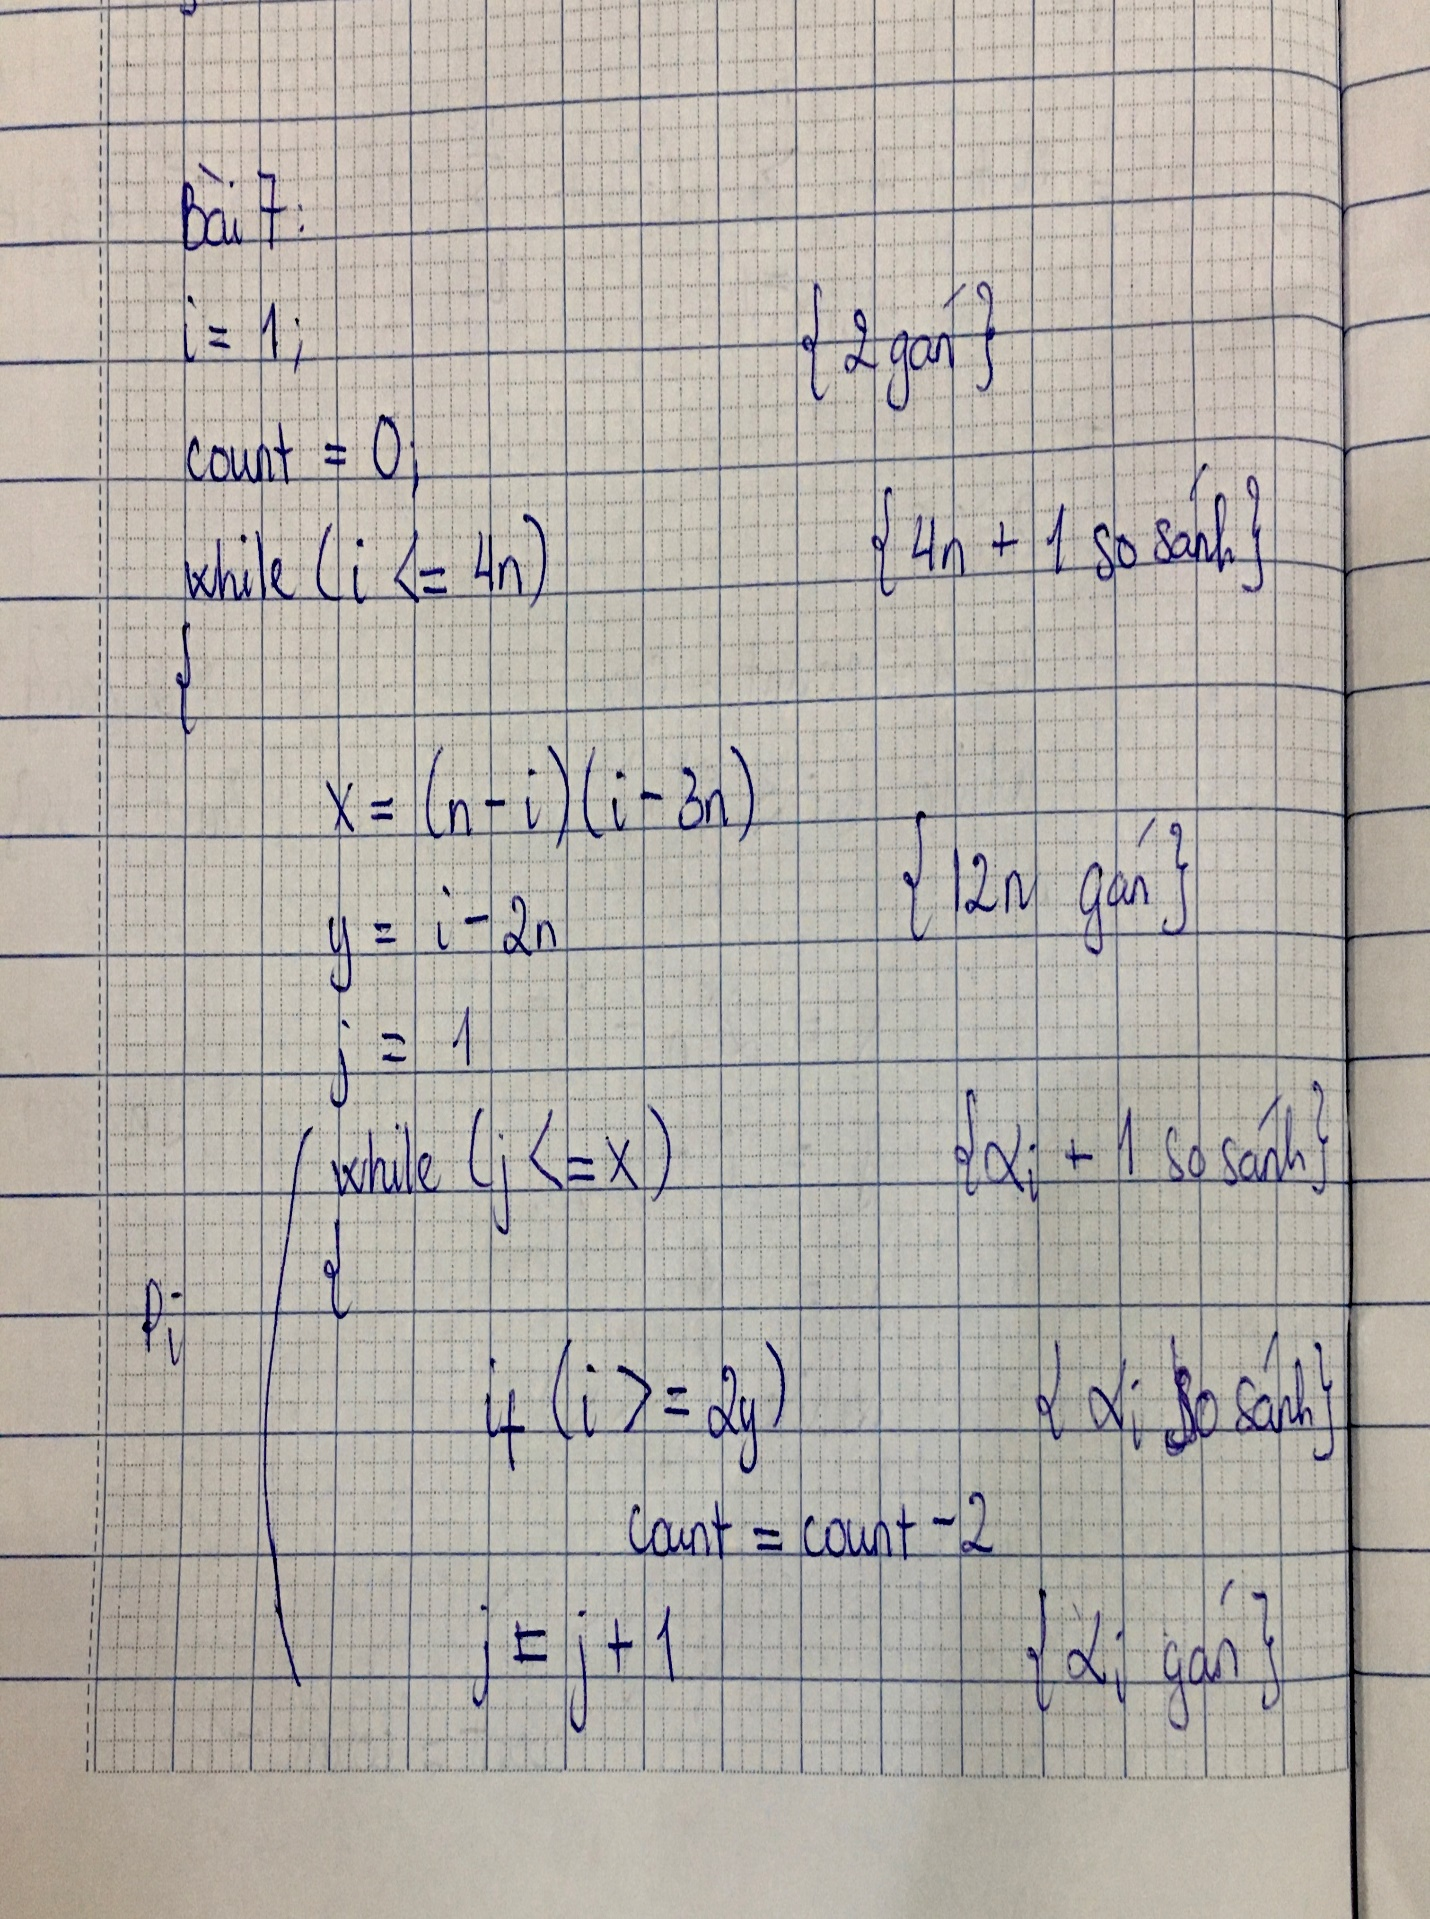 Bài 7:
i = 1; {2 gán}
count = 0;
while (i <= 4n) {4n + 1 so sánh}
{
x = (n - i)(i - 3n)
{12n gán}
y = i - 2n
j = 1
while (j <= x) {αi + 1 so sánh}
{
Pi
if (i >= 2y) {αi so sánh}
count = count - 2
j = j + 1 {αi gán}